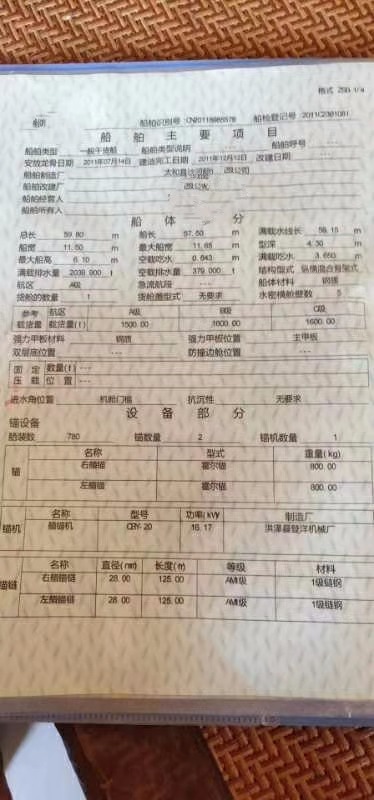 格式 ZSD 1/4
船名 船舶识别号 CN20118985578 船检登记号 2011C2301081
船 舶 主 要 项 目
船舶类型 一般干货船 船舶类型说明 --- 船舶呼号
安放龙骨日期 2011年07月14日 建造完工日期 2011年12月12日 改建日期 ---
船舶制造厂
船舶改建厂
船舶经营人
船舶所有人
船 体 分
总长 59.80 m 船长 57.50 m 满载水线长 58.15 m
船宽 11.50 m 最大船宽 11.68 m 型深 4.30 m
最大船高 6.10 m 空载吃水 0.643 m 满载吃水 3.650 m
满载排水量 2038.900 t 空载排水量 379.000 t 结构型式 纵横混合骨架式
航区 A级 急流航段 --- 船体材料 钢质
货舱的数量 1 货舱盖型式 无要求 水密横舱壁数 5
参考 航区 A级 B级 C级
载货量 载货量(t) 1500.00 1600.00 1600.00
强力甲板材料 钢质 强力甲板位置 主甲板
双层底位置 --- 防撞边舱位置 ---
固定 数量(t) ---
压载 位置 ---
进水角位置 机舱门槛 抗沉性 无要求
设 备 部 分
锚设备
舾装数 780 锚数量 2 锚机数量 1
名称 型式 重量(kg)
锚 右艏锚 霍尔锚 800.00
左艏锚 霍尔锚 800.00
名称 型号 功率(kW) 制造厂
锚机 艏锚机 CBY-20 16.17 洪泽县登洋机械厂
名称 直径(mm) 长度(m) 等级 材料
锚链 右艏锚链 28.00 125.00 AM1级 1级链钢
左艏锚链 28.00 125.00 AM1级 1级链钢